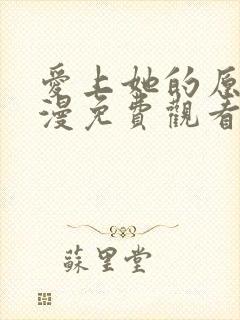 愛上她的原
漫免費觀看
蘇里堂